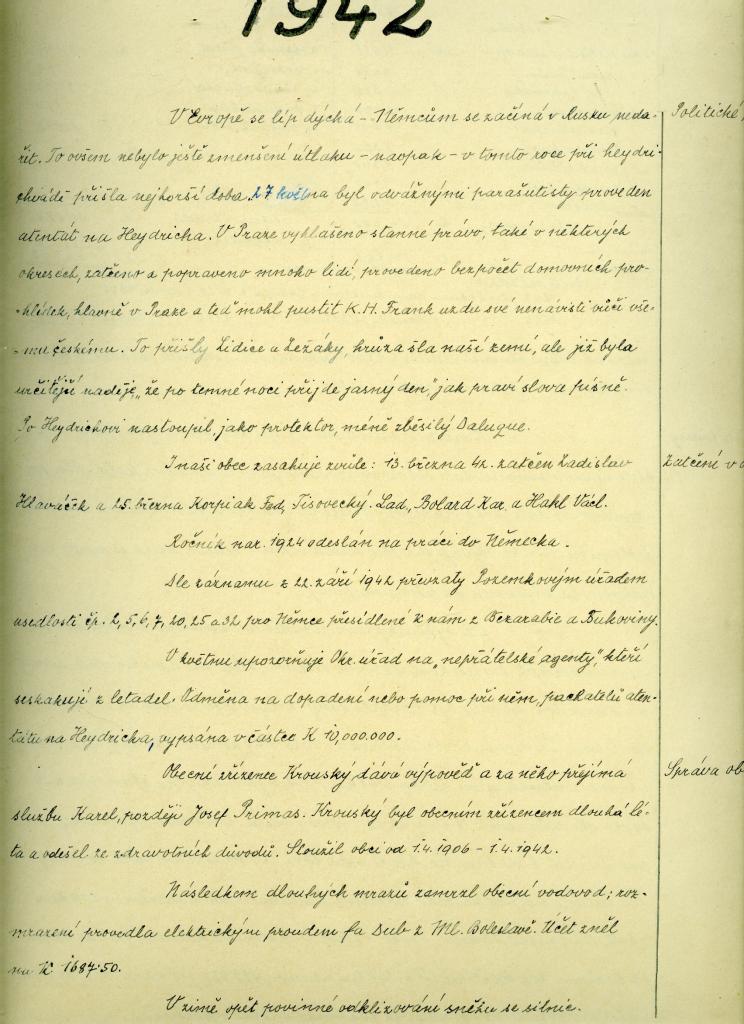 1942
V Evropě se líp dýchá - Němcům se začíná v Rusku neda-
Politické
řit. To ovšem nebylo ještě zmenšení útlaku - naopak - v tomto roce při heydri-
chiádě přišla nejhorší doba. 27 května byl odvážnými parašutisty proveden
atentát na Heydricha. V Praze vyhlášeno stanné právo, také v některých
okresech, zatčeno a popraveno mnoho lidí, provedeno bezpočet domovních pro-
hlídek, hlavně v Praze a teď mohl pustit K.H. Frank uzdu své nenávisti vůči vše-
mu českému. To přišly Lidice a Ležáky, hrůza šla naší zemí, ale již byla
určitější naděje, "že po temné noci přijde jasný den," jak praví slova písně.
Po Heydrichovi nastoupil, jako protektor, méně zběsilý Daluque.
I naši obec zasahuje zvůle: 13. března 42. zatčen Ladislav
Zatčení v o
Hlaváček a 25. března Korpiak Fed, Tisovecký. Lad., Bolard Kar. a Hakl Václ.
Ročník nar. 1924 odeslán na práci do Německa.
Dle záznamu z 22. září 1942 převzaty Pozemkovým úřadem
usedlosti čp. 2, 5, 6, 7, 20, 25 a 32 pro Němce přesídlené k nám z Bezarabie a Bukoviny.
V květnu upozorňuje Okr. úřad na "nepřátelské agenty", kteří
seskakují z letadel. Odměna na dopadení nebo pomoc při něm, pachatelů aten-
tátu na Heydricha, vypsána v částce K 10,000.000.
Obecní zřízenec Krouský dává výpověď a za něho přejímá
Správa ob
službu Karel, později Josef Primas. Krouský byl obecním zřízencem dlouhá lé-
ta a odešel ze zdravotních důvodů. Sloužil obci od 1.4. 1906 - 1.4. 1942.
Následkem dlouhých mrazů zamrzl obecní vodovod; roz-
mrazení provedla elektrickým proudem fa Dub z Ml. Boleslavě. Účet zněl
na K 1687·50.
V zimě opět povinné odklizování sněhu se silnic.